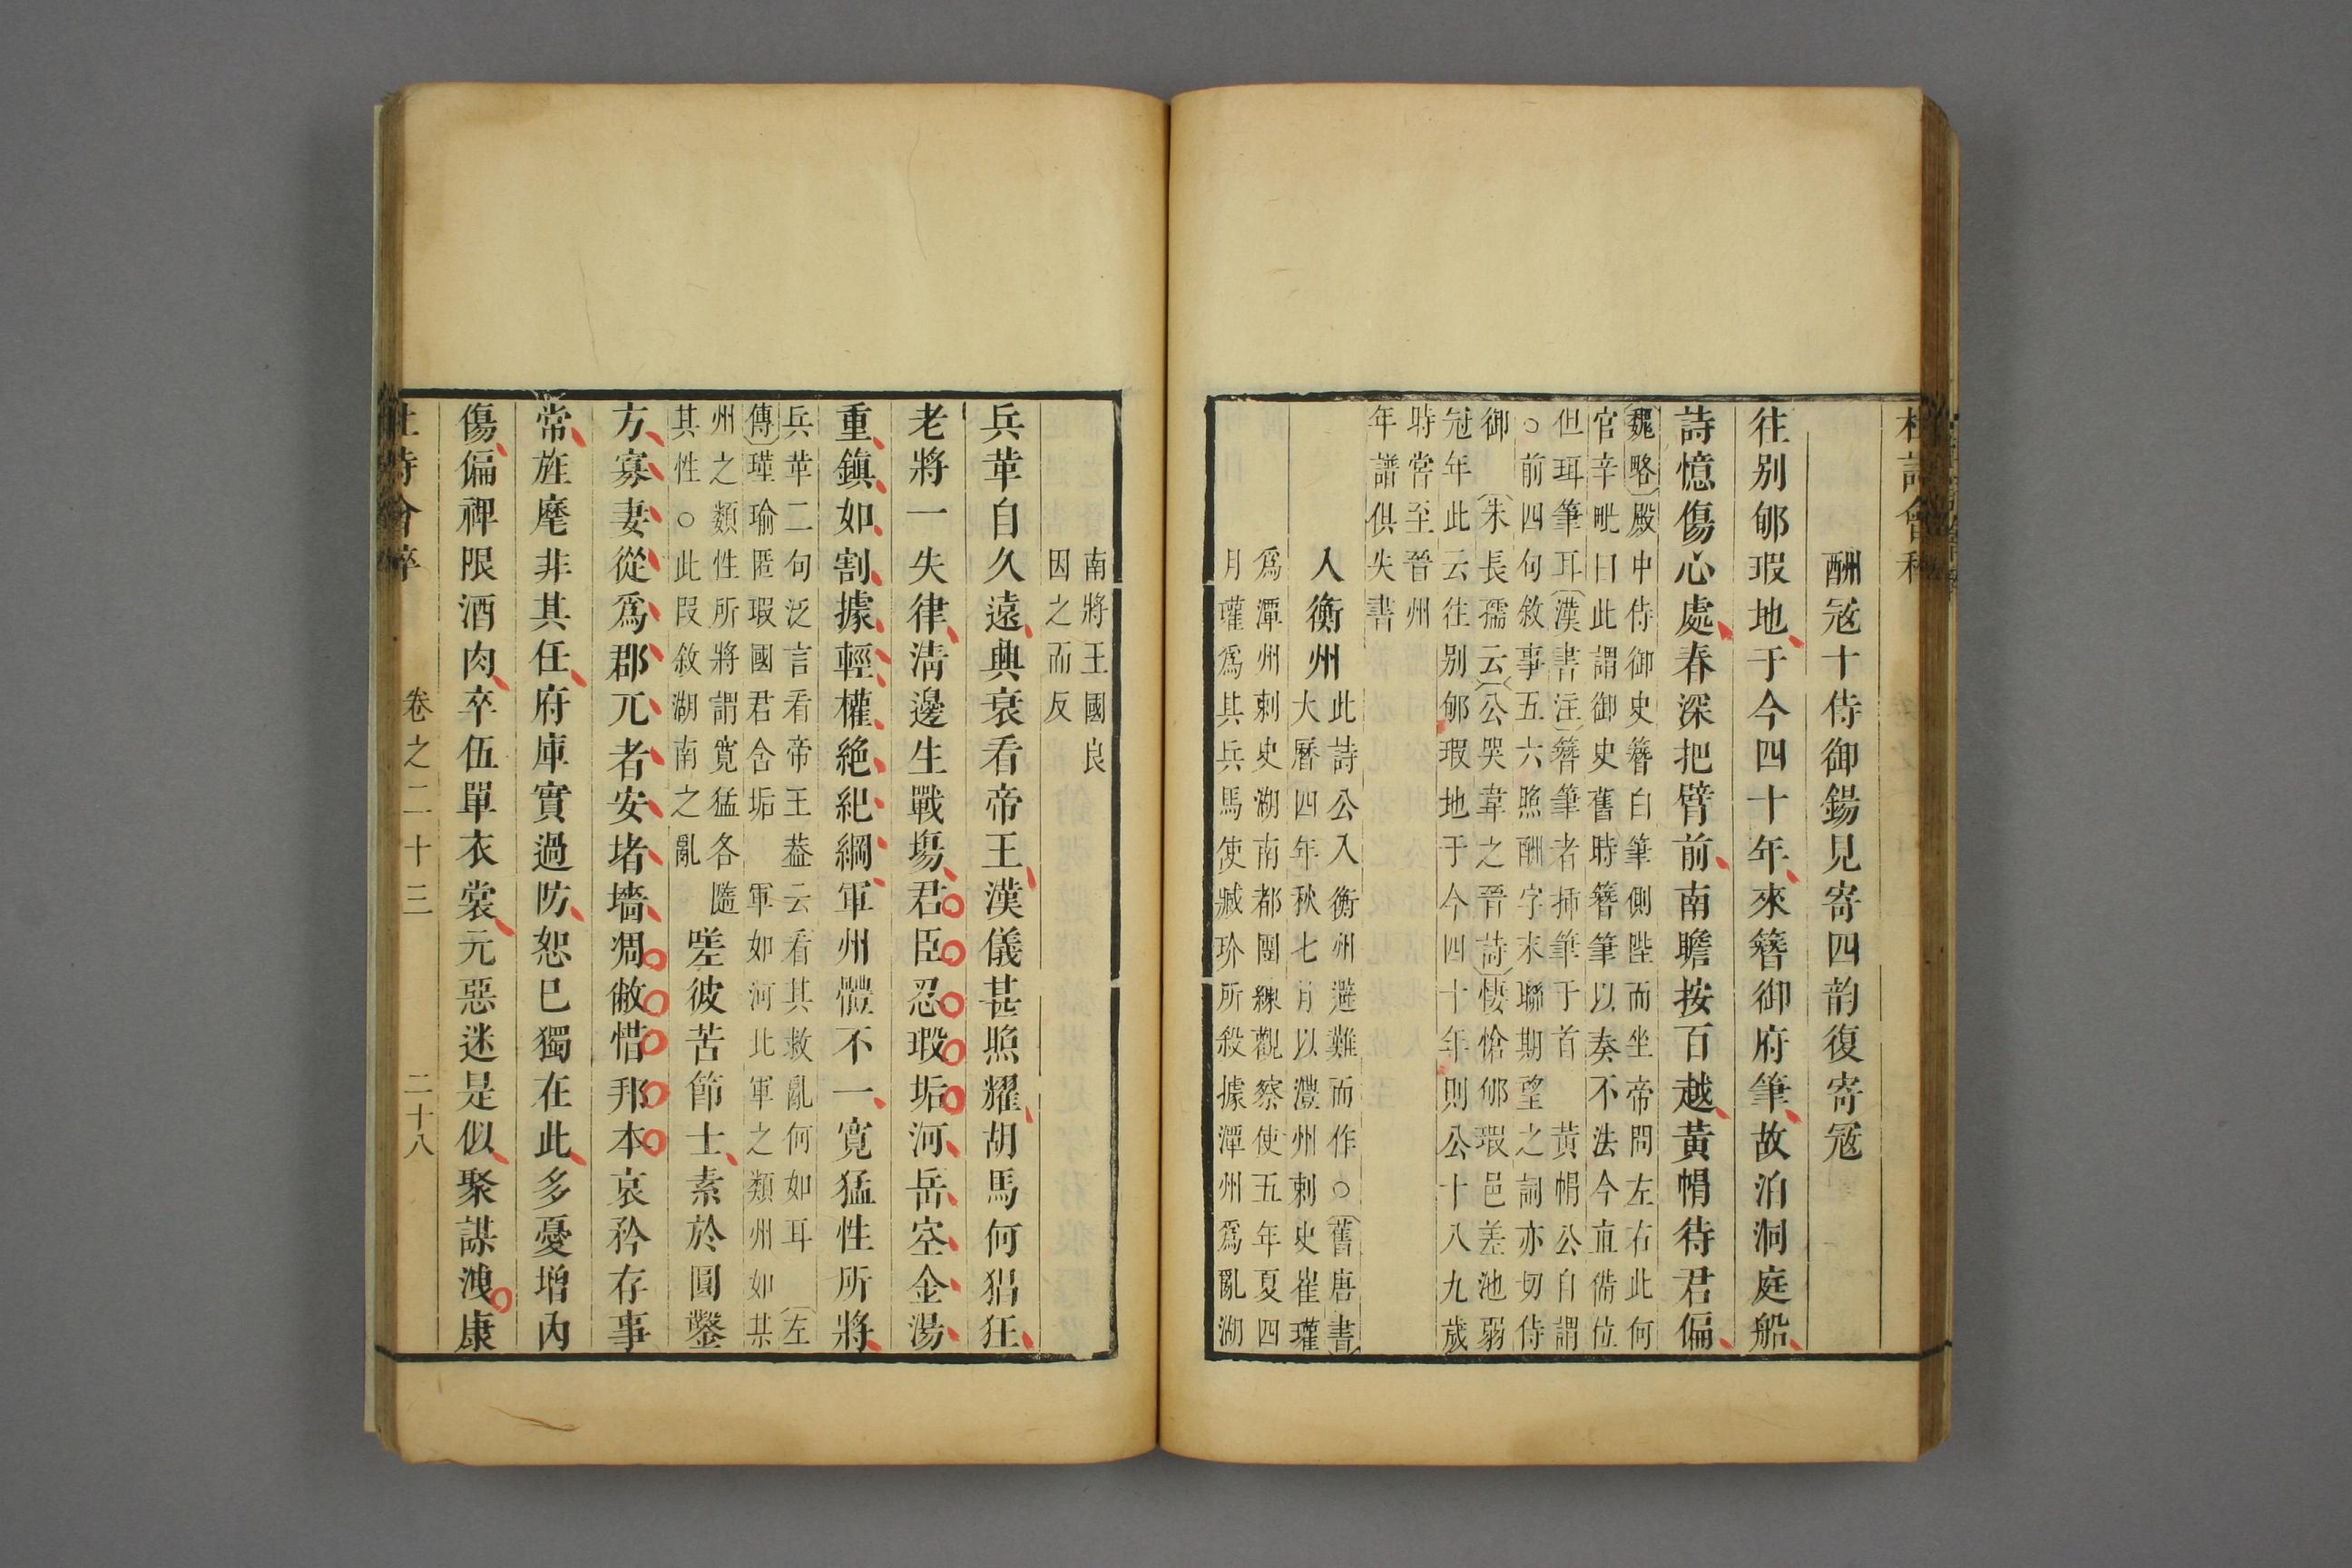 杜詩會稡
酬寇十侍御鍚見寄四韵復寄寇
往别郇瑕地于今四十年來簪御府筆故泊洞庭船
詩憶傷心處春深把臂前南瞻按百越黃帽待君偏
魏略殿中侍御史簪白筆側陛而坐帝問左右此何
官辛毗曰此謂御史舊時簪筆以奏不法今直備位
但珥筆耳漢書注簪筆者揷筆于首 黃帽公自謂
○前四句敘事五六照酬字末聯期望之詞亦切侍
御 朱長孺云公哭韋之晉詩悽愴郇瑕邑差池弱
冠年此云往别郇瑕地于今四十年則公十八九歲
時嘗至晉州
年譜俱失書
入衡州
此詩公入衡州避難而作○舊唐書
大曆四年秋七月以澧州刺史崔瓘
爲潭州刺史湖南都團練觀察使五年夏四
月瓘爲其兵馬使臧玠所殺據潭州爲亂湖
南將王國良
因之而反
兵革自久遠興衰看帝王漢儀甚照耀胡馬何猖狂
老將一失律清邊生戰場君臣忍瑕垢河岳空金湯
重鎮如割據輕權絶紀綱軍州體不一寛猛性所將
兵革二句泛言看帝王葢云看其救亂何如耳 左
傳瑾瑜匿瑕國君含垢 軍如河北軍之類州如某
州之類性所將謂寛猛各隨
其性○此段敘湖南之亂
嗟彼苦節士素於圓鑿
方寡妻從爲郡兀者安堵墻凋敝惜邦本哀矜存事
常旌麾非其任府庫實過防恕已獨在此多憂增内
傷偏裨限酒肉卒伍單衣裳元惡迷是似聚謀洩康
杜詩會稡 卷之二十三 二十八